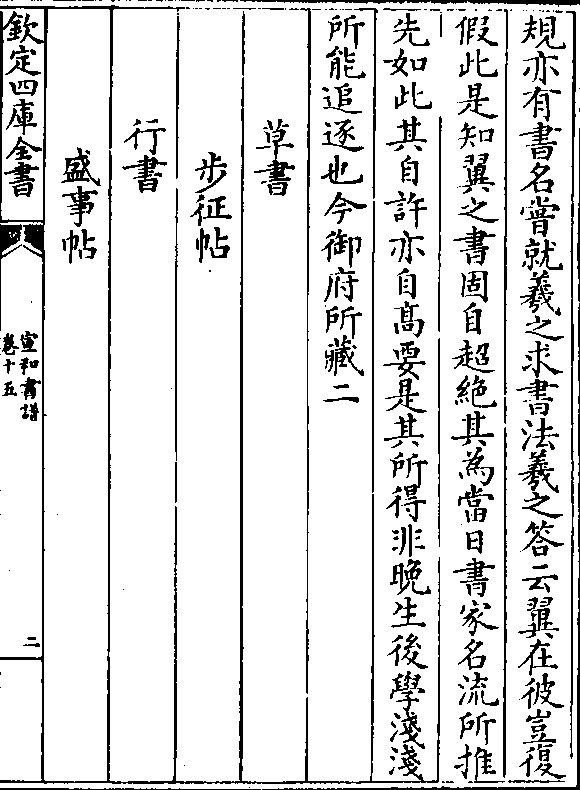 規亦有書名嘗就羲之求書法羲之答云翼在彼豈復
假此是知翼之書固自超絶其為當日書家名流所推
先如此其自許亦自髙要是其所得非晚生後學淺淺
所能追逐也今御府所藏二
草書
步征帖
行書
盛事帖
欽定四庫全書
宣和書譜
卷十五
二